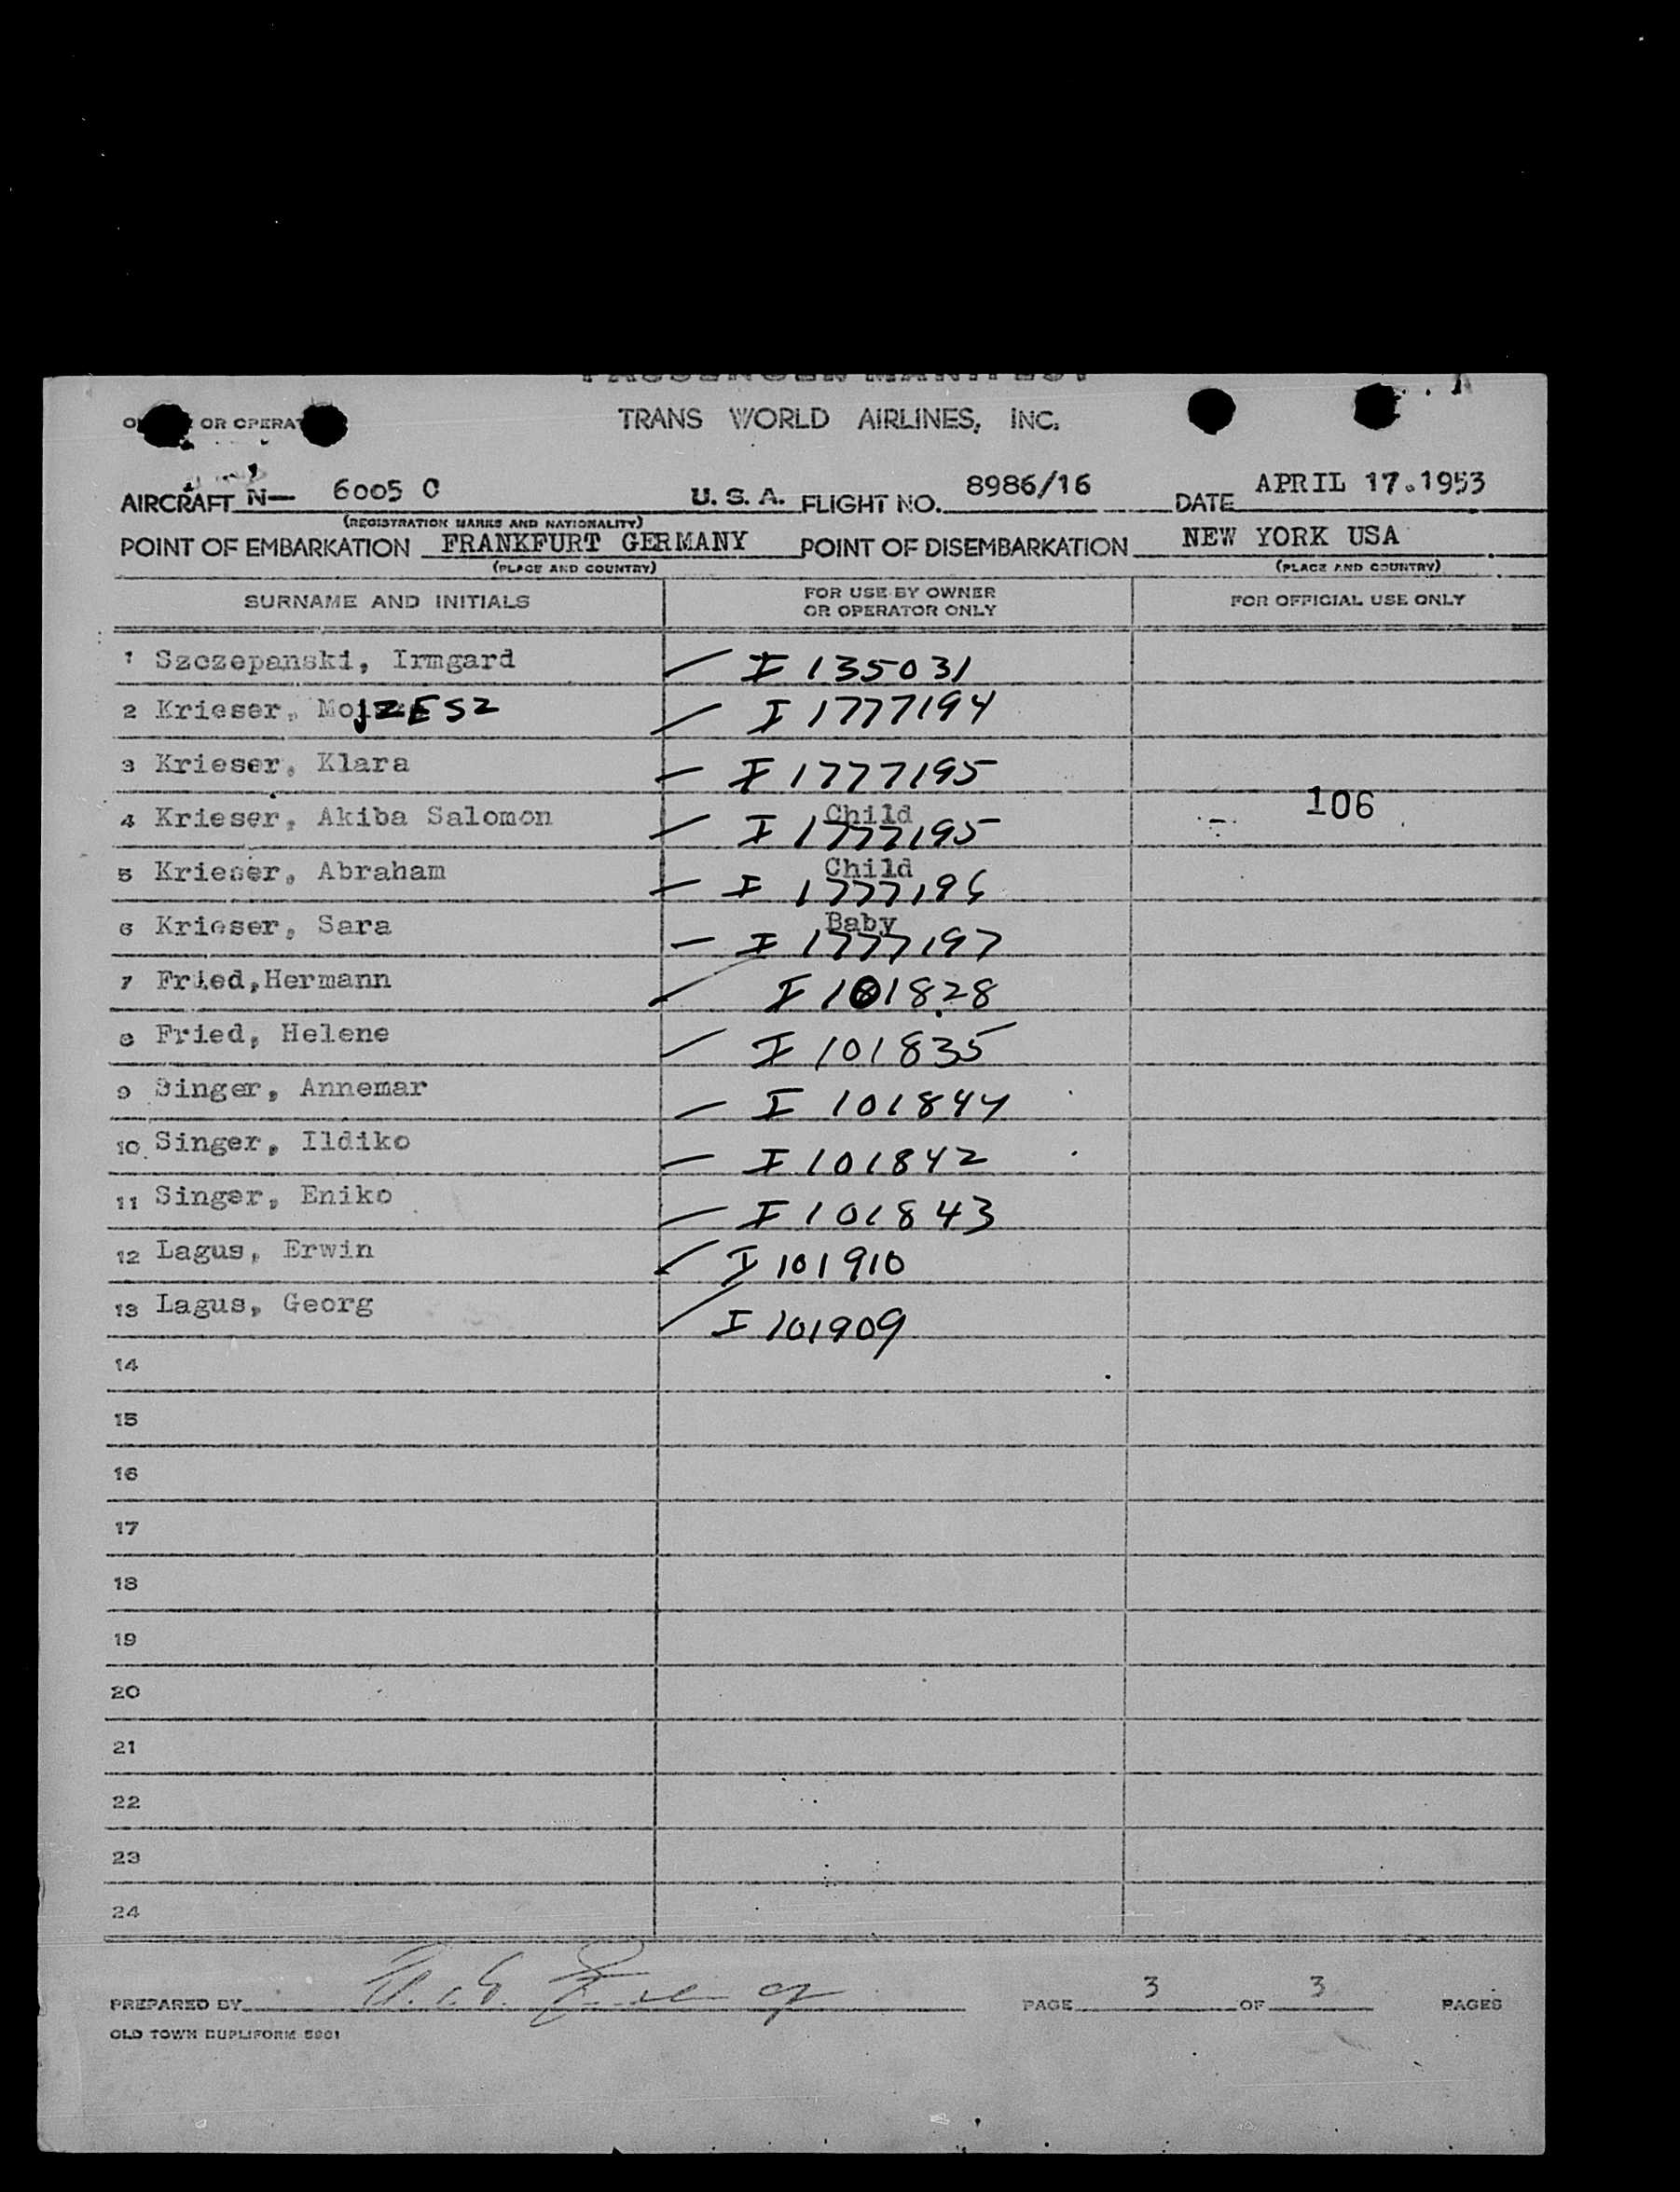 PASSENGER MANIFEST
OR OPERAT
TRANS WORLD AIRLINES, INC.
AIRCRAFT N— 6005 C U. S. A. FLIGHT NO. 8986/16 DATE APRIL 17.1953
(REGISTRATION MARKS AND NATIONALITY)
POINT OF EMBARKATION FRANKFURT GERMANY POINT OF DISEMBARKATION NEW YORK USA
(PLACE AND COUNTRY) (PLACE AND COUNTRY)
SURNAME AND INITIALS FOR USE BY OWNER OR OPERATOR ONLY FOR OFFICIAL USE ONLY
1 Szczepanski, Irmgard I 135031
2 Krieser, MojZESZ I 1777194
3 Krieser, Klara I 1777195
4 Krieser, Akiba Salomon Child I 1777195 106
5 Krieser, Abraham Child I 1777196
6 Krieser, Sara Baby I 1777197
7 Fried,Hermann I 101828
8 Fried, Helene I 101835
9 Singer, Annemar I 101844
10 Singer, Ildiko I 101842
11 Singer, Eniko I 101843
12 Lagus, Erwin I 101910
13 Lagus, Georg I 101909
14
15
16
17
18
19
20
21
22
23
24
PREPARED BY PAGE 3 OF 3 PAGES
OLD TOWN DUPLIFORM 5901